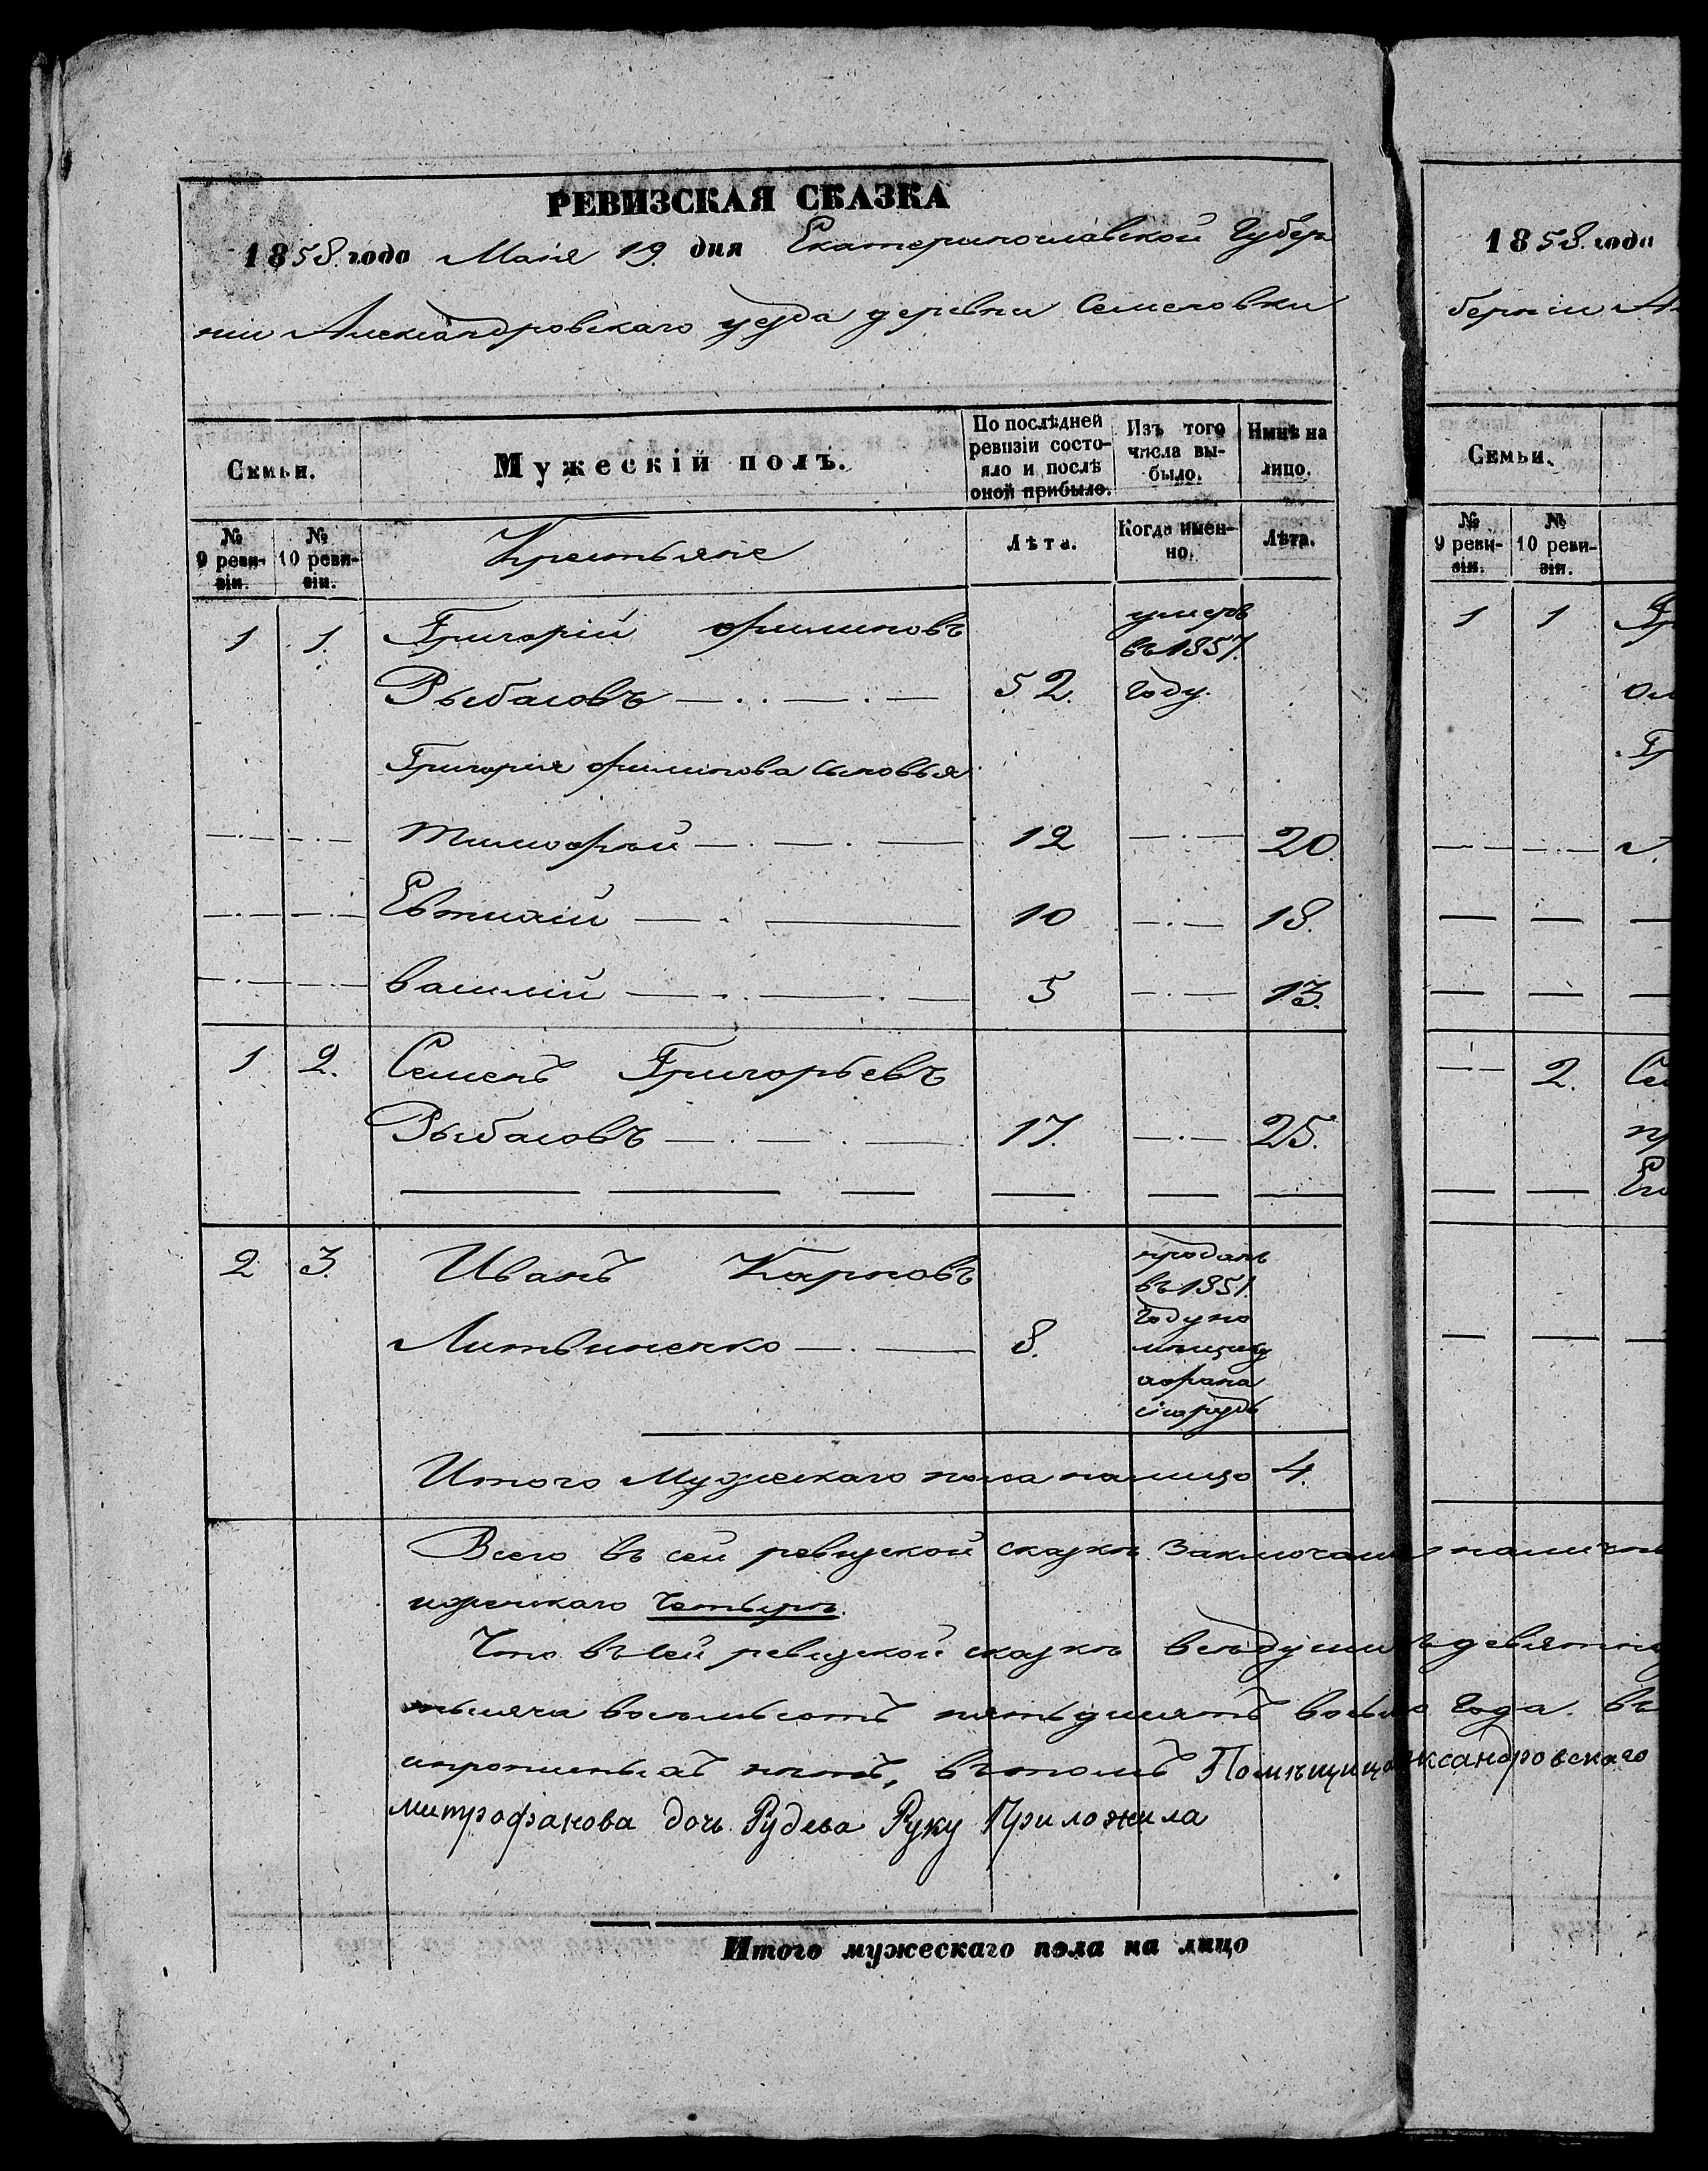 РЕВИЗСКАЯ СКАЗКА
1858. года Маія 19. дня Екатеринославской Губер
ніи Александровскаго уезда деревни Семеновки
Семьи.
Мужескій полъ.
По послѣдней ревизіи состо-
яло и послѣ
оной прибыло.
Изъ того
числа вы-
было.
Нынѣ на
лицо.
№
9 реви-
зіи.
№
10 реви-
зіи.
Крестьяне
Лѣта.
Когда имен-
но.
Лѣта.
1 1. Григорій Филиповъ умеръ
въ 1857.
Рыбаловъ 52. году.
Григорія Филипова сыновья
Тимофей 12 20.
Евтихій 10 18.
Василій 5 13.
1 2. Семенъ Григорьевъ
Рыбаловъ 17. 25.
2 3. Иванъ Карповъ проданъ
въ 1851.
году по
Литвиненко 8.
Итого Мужескаго пола налицо 4.
Всего въ сей ревизской сказкѣ заключает наличн
женскаго четыре.
Что въ сей ревизской сказкѣ всѣ души девятн
тысяча восемьсотъ пятьдесятъ вось года. въ
нѣтъ, въ томъ Помѣщица ксандровскаго
митрофанова дочь Рудева Руку Приложила
Итого мужескаго пола на лицо
1858. года
берніи А
Семьи.
№
9 реви-
зіи.
№
10 реви-
зіи.
1 1 Гр
Гр
2. Се